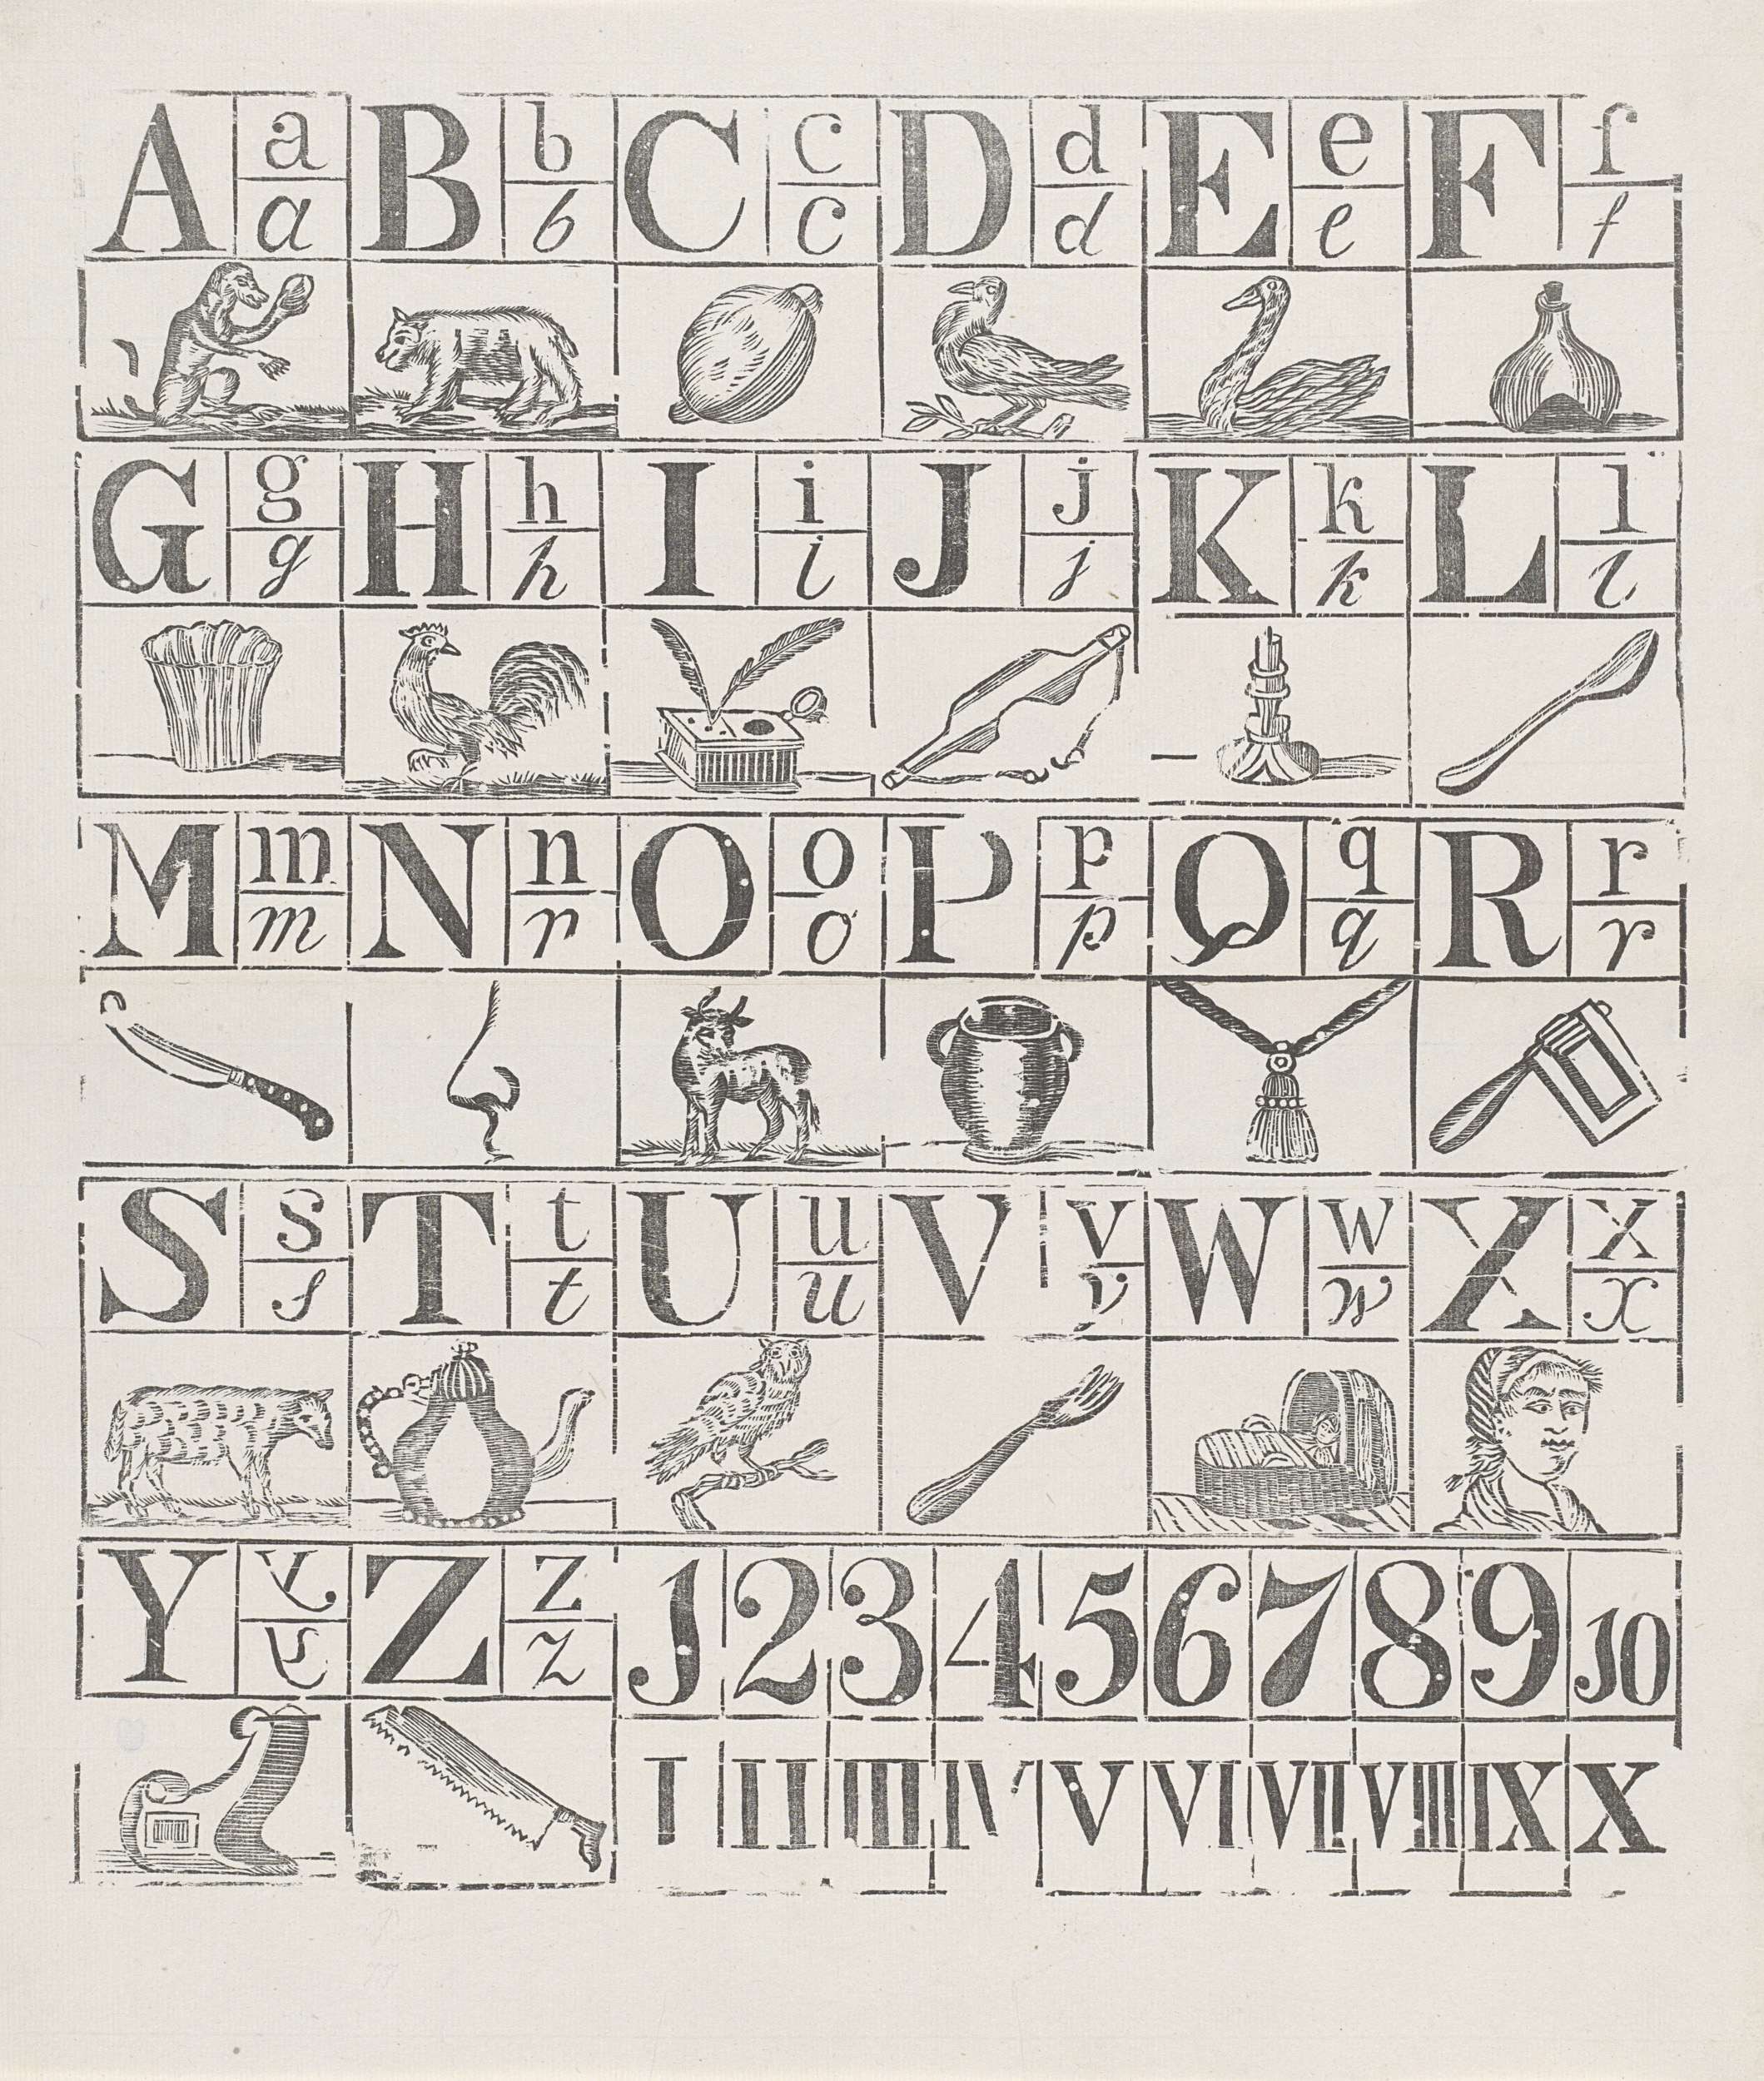 A a B b C c D d E e F f
a b c d e f
G g H h I i J j K k L l
g h i j k l
M m N n O o P p Q q R r
m n o p q r
S s T t U u V v W w X x
s t u v w x
Y y Z z 1 2 3 4 5 6 7 8 9 10
y z
I II III IV V VI VII VIII IX X